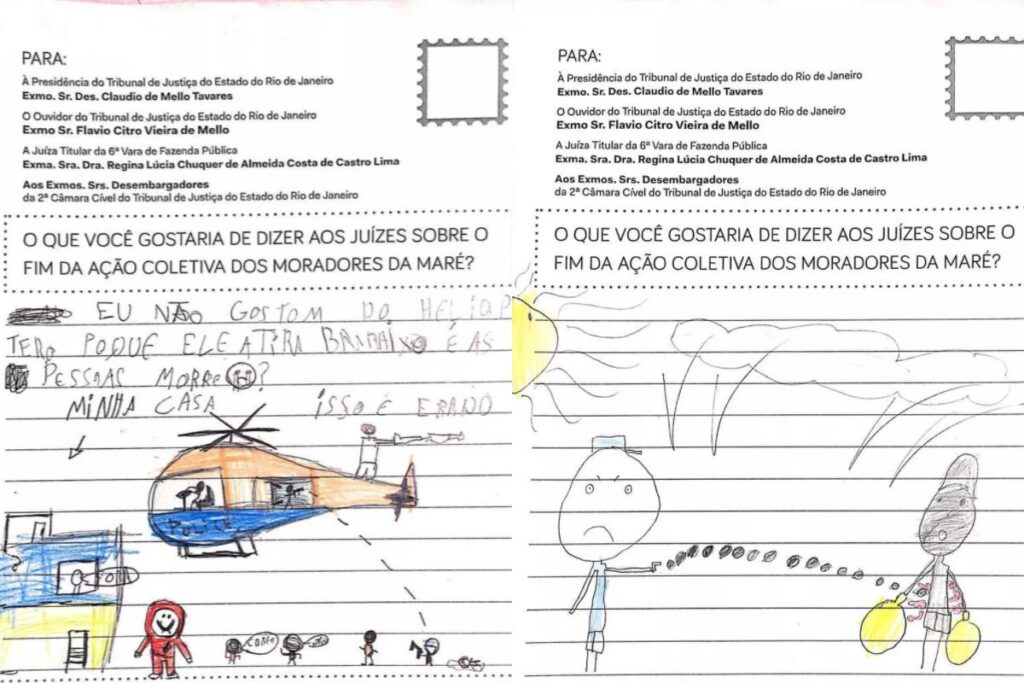 PARA:
À Presidência do Tribunal de Justiça do Estado do Rio de Janeiro
Exmo. Sr. Des. Claudio de Mello Tavares
O Ouvidor do Tribunal de Justiça do Estado do Rio de Janeiro
Exmo Sr. Flavio Citro Vieira de Mello
A Juíza Titular da 6ª Vara de Fazenda Pública
Exma. Sra. Dra. Regina Lúcia Chuquer de Almeida Costa de Castro Lima
Aos Exmos. Srs. Desembargadores
da 2ª Câmara Cível do Tribunal de Justiça do Estado do Rio de Janeiro
O QUE VOCÊ GOSTARIA DE DIZER AOS JUÍZES SOBRE O
FIM DA AÇÃO COLETIVA DOS MORADORES DA MARÉ?
EU NÃO GOSTOM DO HELIAP
TERO POQUE ELE ATIRA É AS
PESSOAS MORRE ?
MINHA CASA ISSO É
POLICE
PARA:
À Presidência do Tribunal de Justiça do Estado do Rio de Janeiro
Exmo. Sr. Des. Claudio de Mello Tavares
O Ouvidor do Tribunal de Justiça do Estado do Rio de Janeiro
Exmo Sr. Flavio Citro Vieira de Mello
A Juíza Titular da 6ª Vara de Fazenda Pública
Exma. Sra. Dra. Regina Lúcia Chuquer de Almeida Costa de Castro Lima
Aos Exmos. Srs. Desembargadores
da 2ª Câmara Cível do Tribunal de Justiça do Estado do Rio de Janeiro
O QUE VOCÊ GOSTARIA DE DIZER AOS JUÍZES SOBRE O
FIM DA AÇÃO COLETIVA DOS MORADORES DA MARÉ?